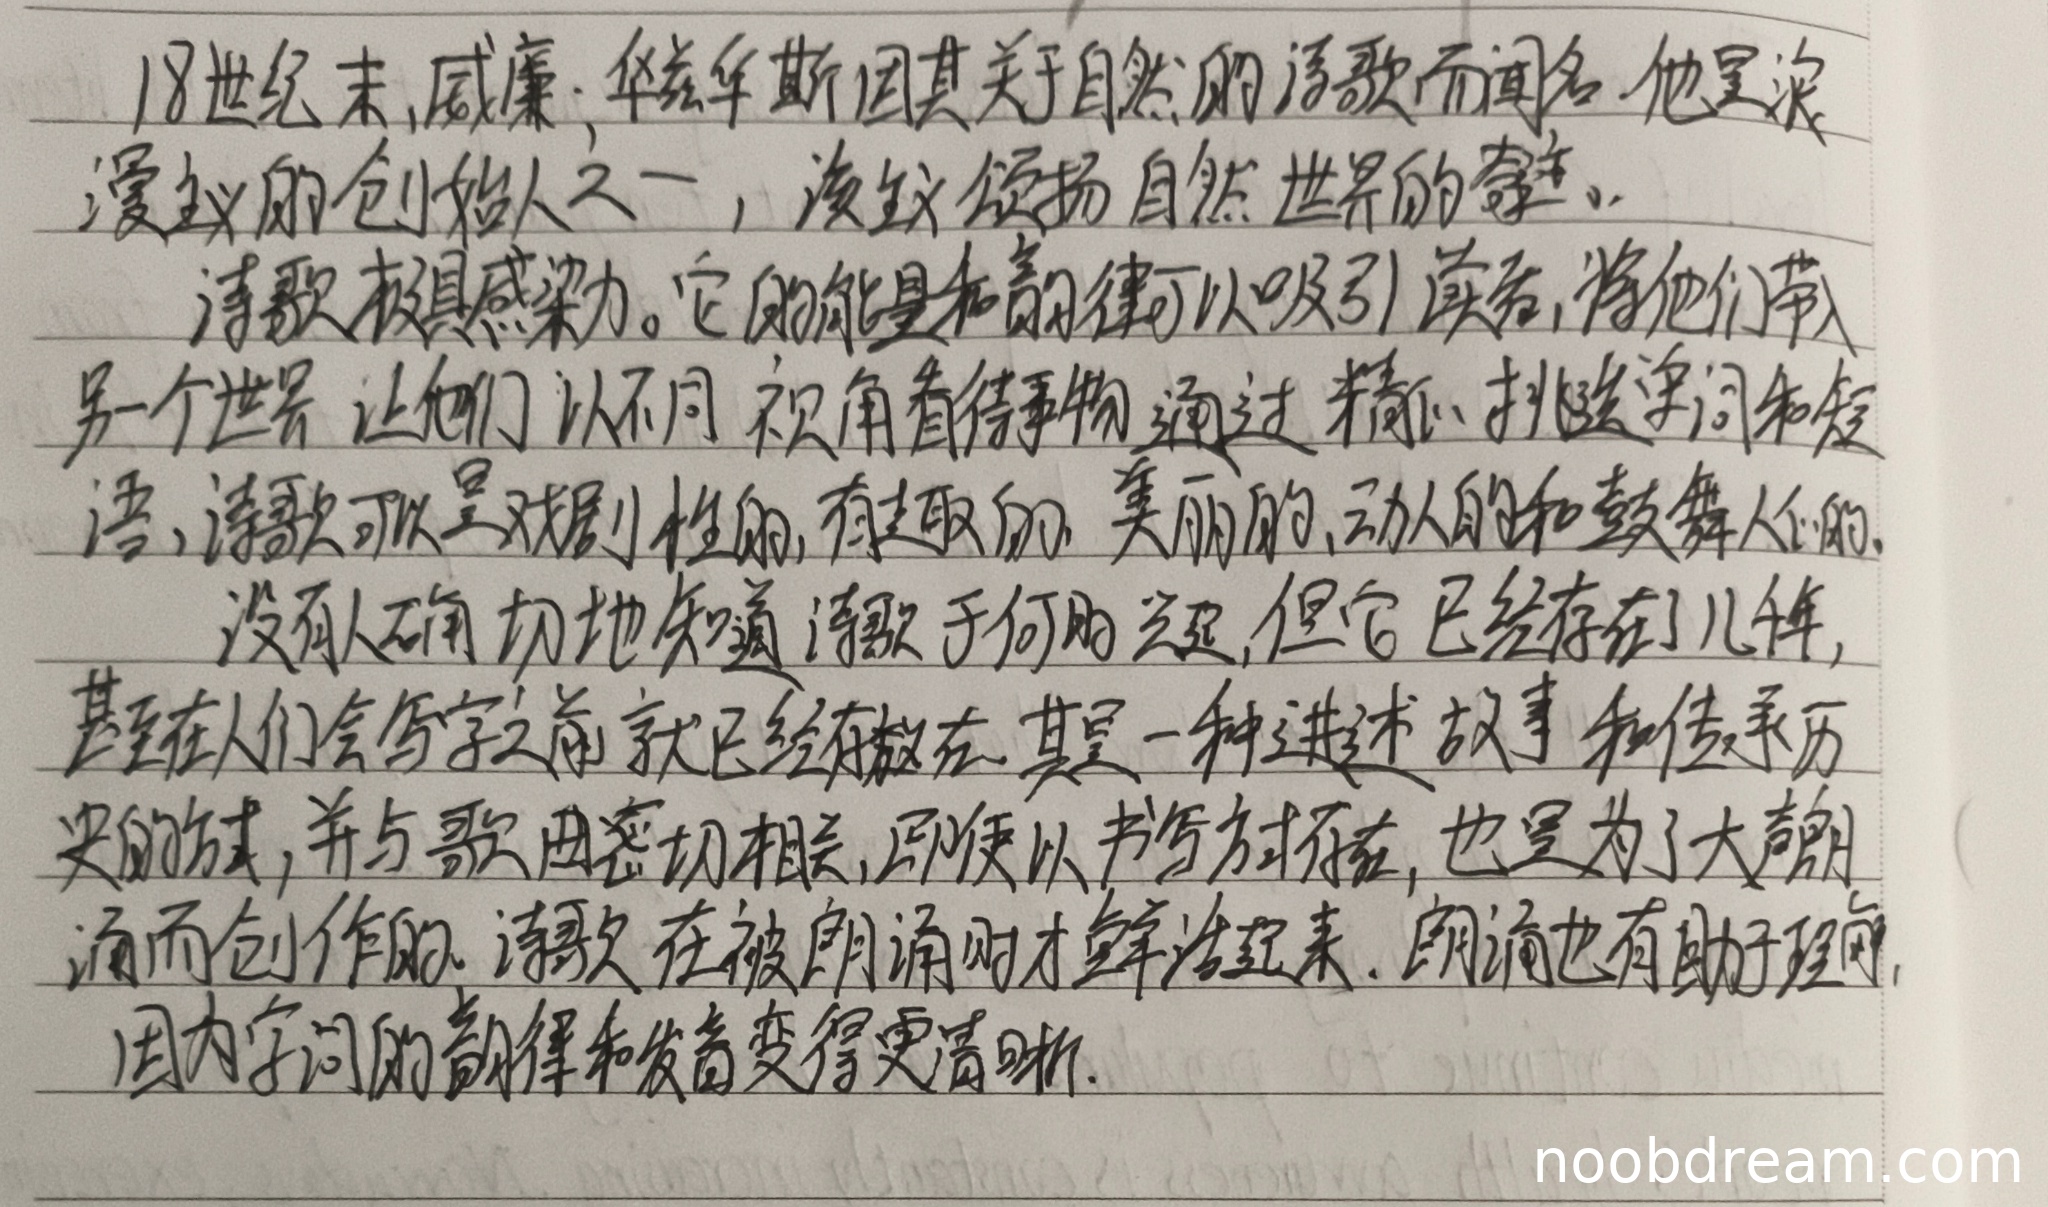 18世纪末,威廉·华兹华斯因其关于自然的诗歌而闻名.他是浪
漫主义的创始人之一,该主义颂扬自然世界的奇迹。
诗歌极具感染力。它的能量和韵律可以吸引读者,将他们带入
另一个世界 让他们以不同视角看待事物 通过精心挑选单词和短
语,诗歌可以是戏剧性的,有趣的、美丽的、动人的和鼓舞人心的.
没有人确切地知道诗歌于何时兴起,但它已经存在了几千年,
甚至在人们会写字之前就已经存在.其是一种讲述故事和传承历
史的方式,并与歌曲密切相关,即使以书写方式存在,也是为了大声朗
诵而创作的.诗歌在被朗诵时才鲜活起来.朗诵也有助于理解,
因为字词的韵律和发音变得更清晰.
noobdream.com